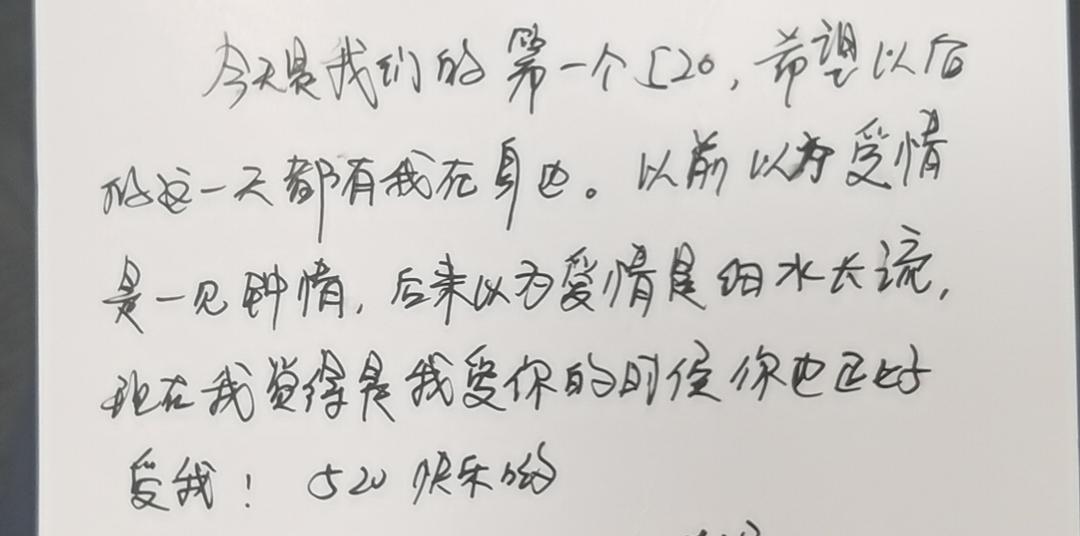 今天是我们的第一个520，希望以后
的这一天都有我在身边。以前以为爱情
是一见钟情，后来以为爱情是细水长流，
现在我觉得是我爱你的时候你也正好
爱我！520快乐哟